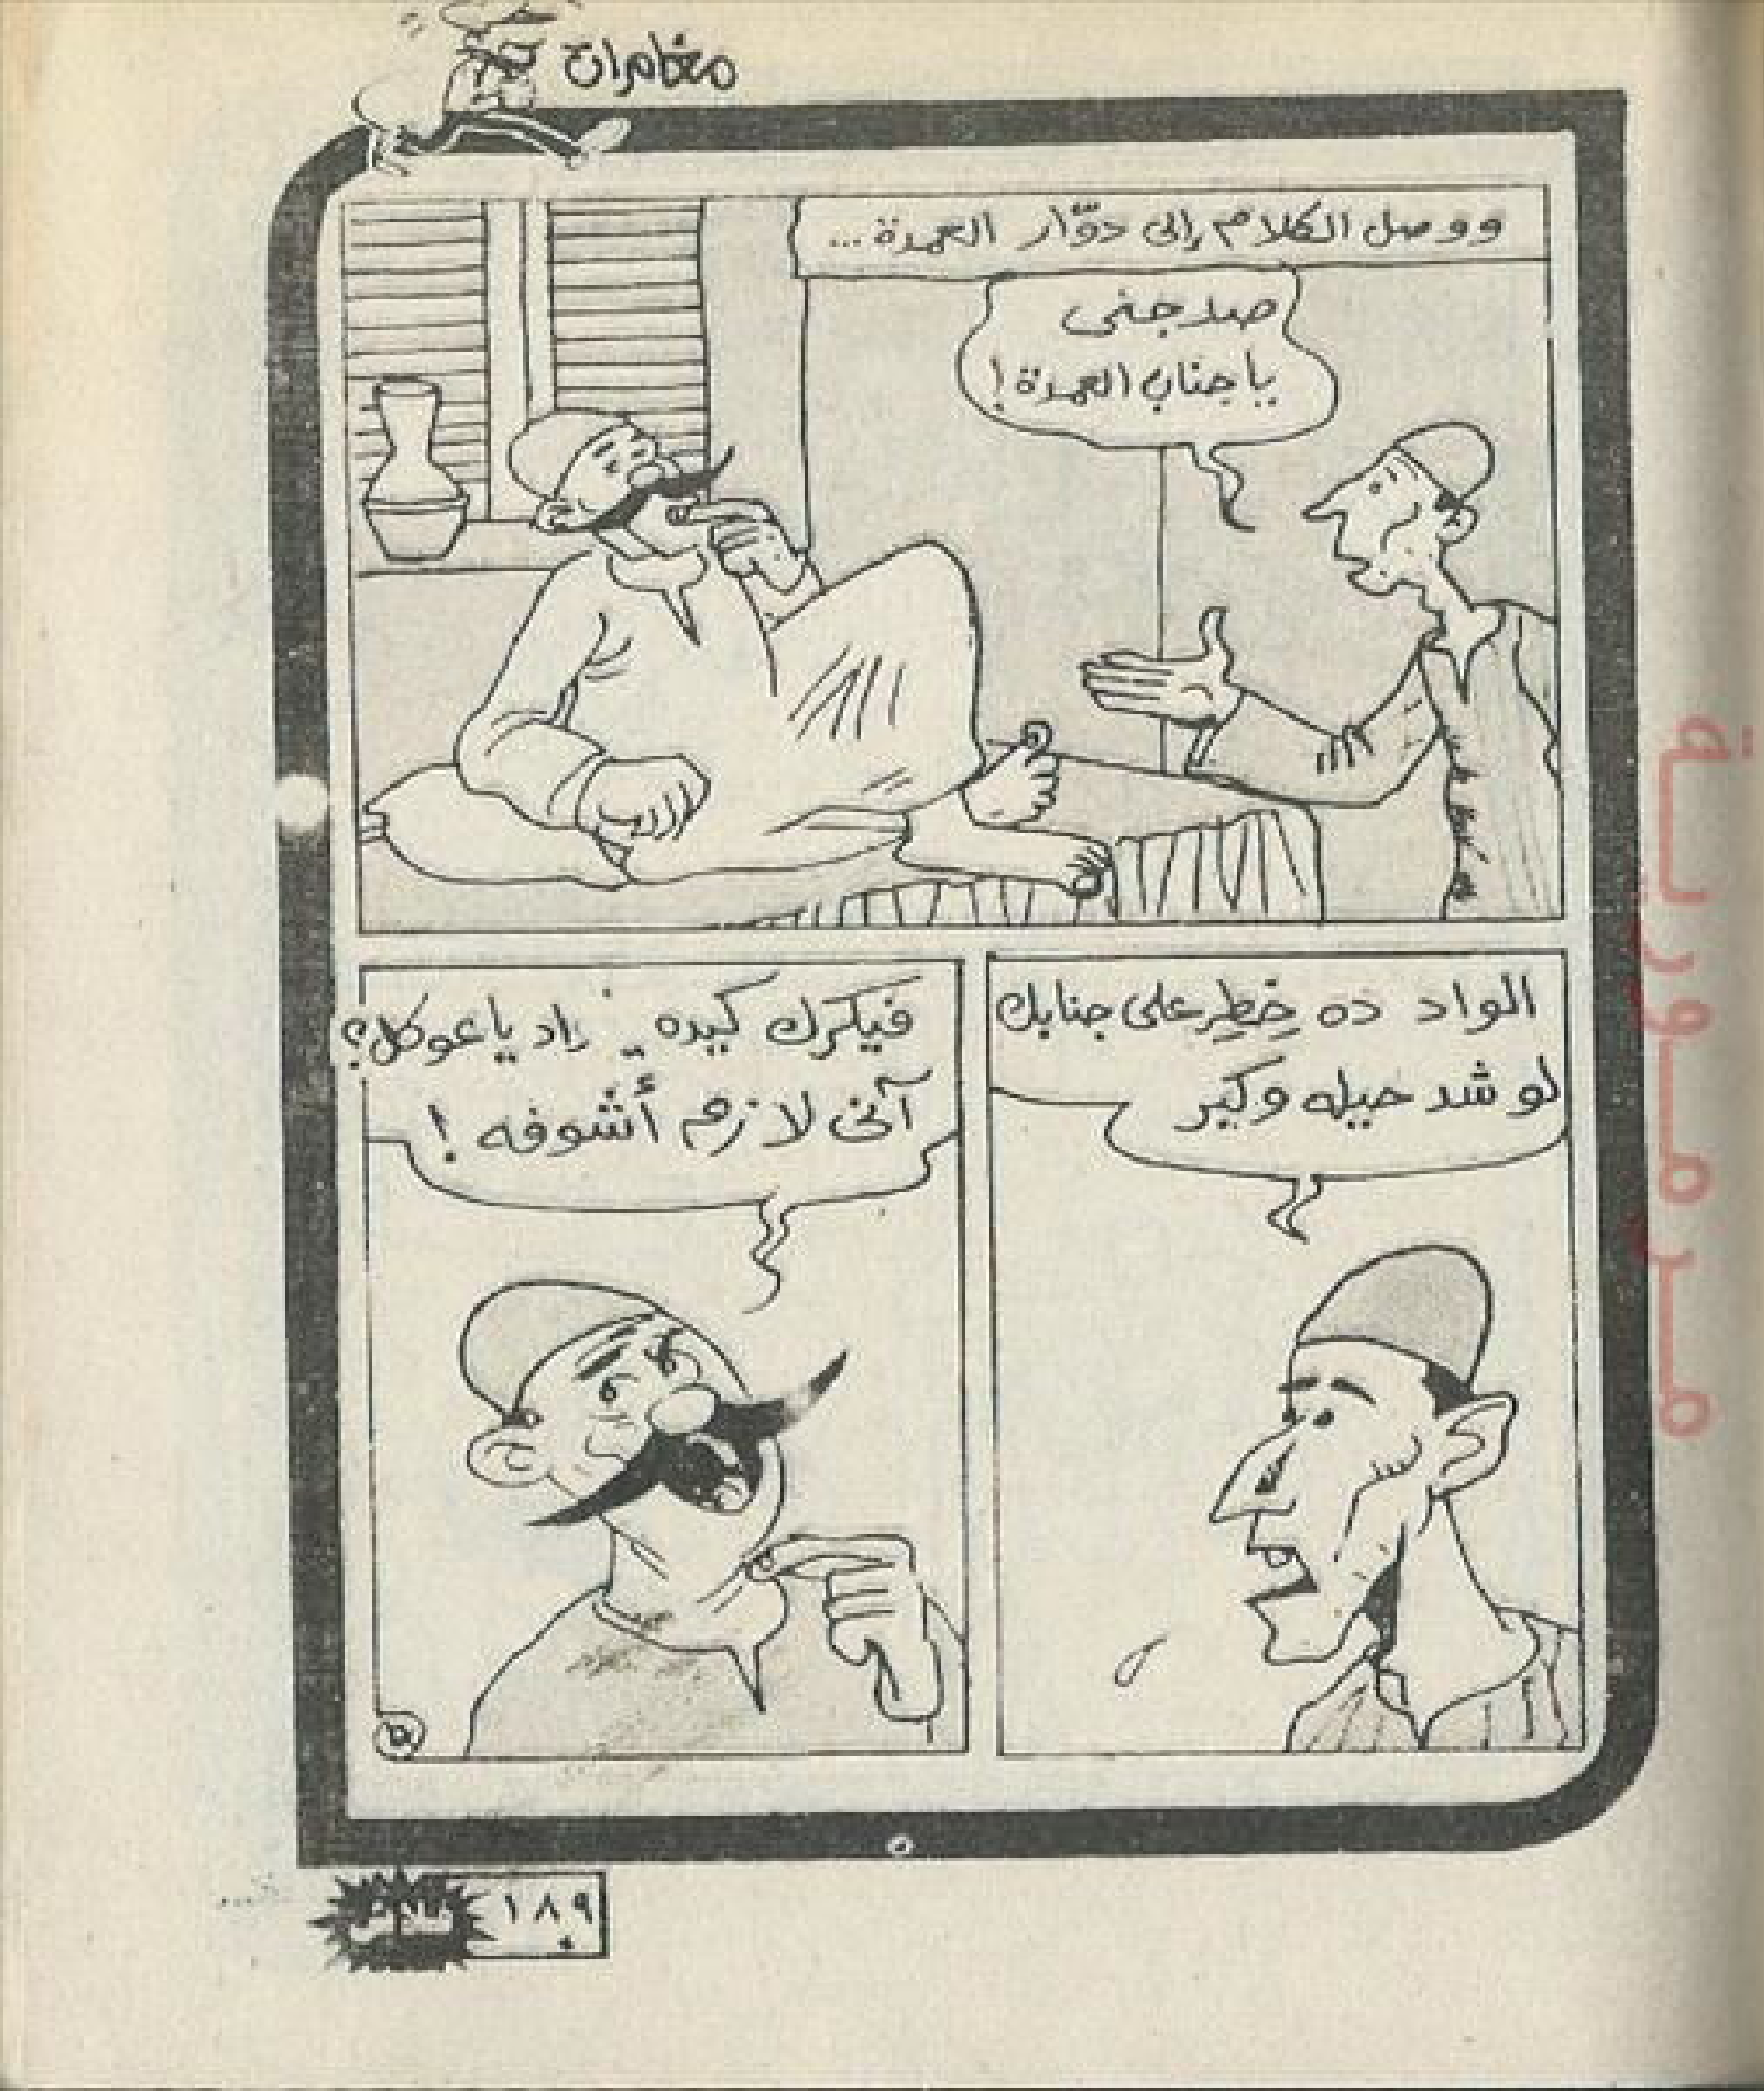 مغامرات
ووصل الكلام إلى دوّار العمدة ...
صدجنى
يا جناب العمدة !
الواد ده خِطِر على جنابك
لو شد حيله وكبر
فيكرك كيده .. زاد يا عوكل ؟
آنى لازم أشوفه !
٥
١٨٩
مرمورية